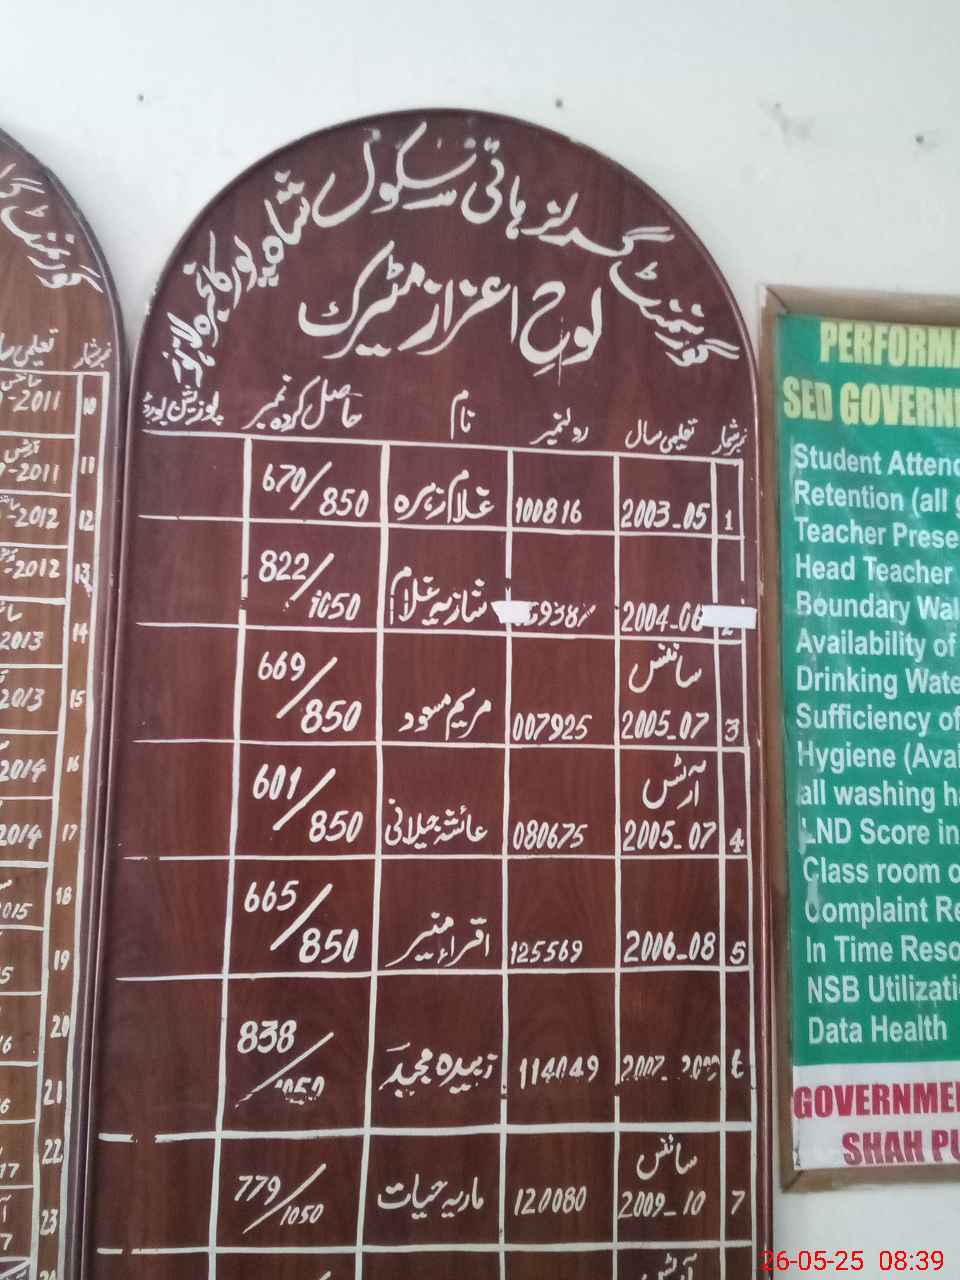 گورنمنٹ گرلز ہائی سکول شاہ پور کانجرہ لاہور
لوحِ اعزاز میٹرک
نمبرشمار تعلیمی سال رولنمبر نام حاصل کردہ نمبر پوزیشن بورڈ
1 2003-05 100816 غلام زہرہ 670/850
2 2004-06 شازیہ غلام 822/1050
3 سائنس 2005-07 007925 مریم مسعود 669/850
4 آرٹس 2005-07 080675 عائشہ جیلانی 601/850
5 2006-08 125569 اقراء منیر 665/850
6 114049 زبیدہ مجید 838/1050
7 سائنس 2009-10 120080 ماریہ حیات 779/1050
آرٹس
گورنمنٹ
نمبرشمار تعلیمی
10 -2011
11 آرٹس -2011
12 -2012
13 -2012
14 2013
15 2013
16 2014
17 2014
18 015
19
20
21
22 17
23
PERFORMA
SED GOVERN
Student Attend
Retention (all g
Teacher Prese
Head Teacher
Boundary Wal
Availability of
Drinking Wate
Sufficiency of
Hygiene (Avai
all washing ha
LND Score in
Class room o
Complaint Re
In Time Reso
NSB Utilizati
Data Health
GOVERNMEN
SHAH PU
26-05-25 08:39